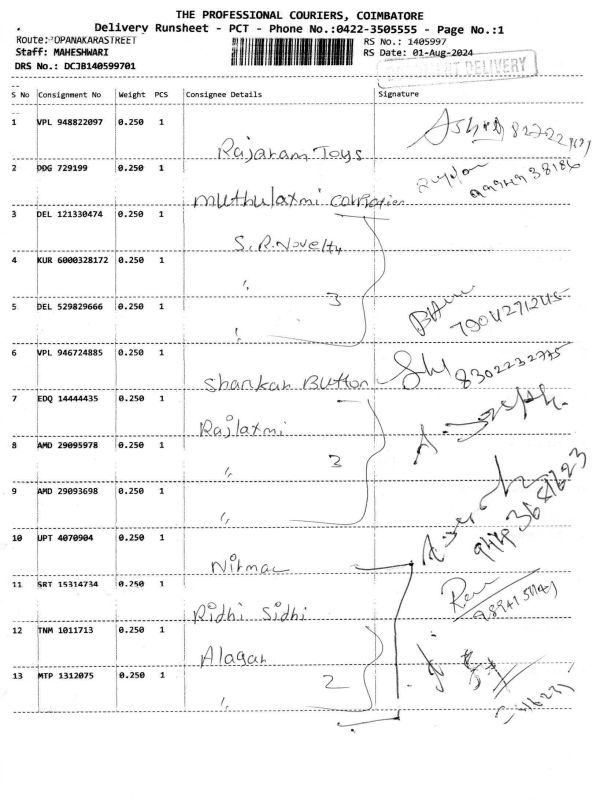 THE PROFESSIONAL COURIERS, COIMBATORE
Delivery Runsheet - PCT - Phone No.:0422-3505555 - Page No.:1
Route: OPANAKARASTREET RS No.: 1405997
Staff: MAHESHWARI RS Date: 01-Aug-2024
DRS No.: DCJB140599701 DELIVERY
S No Consignment No Weight PCS Consignee Details Signature
1 VPL 948822097 0.250 1
Rajaram Toys
2 DDG 729199 0.250 1
muthulaxmi
3 DEL 121330474 0.250 1
S.R.Novelty
4 KUR 6000328172 0.250 1
〃 3
5 DEL 529829666 0.250 1
〃 7904271245
6 VPL 946724885 0.250 1
Shankar Button 8302232775
7 EDQ 14444435 0.250 1
Rajlaxmi
8 AMD 29095978 0.250 1
〃 3
9 AMD 29093698 0.250 1
〃
10 UPT 4070904 0.250 1
Nirmac
11 SRT 15314734 0.250 1
Ridhi Sidhi
12 TNM 1011713 0.250 1
Alagar
13 MTP 1312075 0.250 1
〃 2